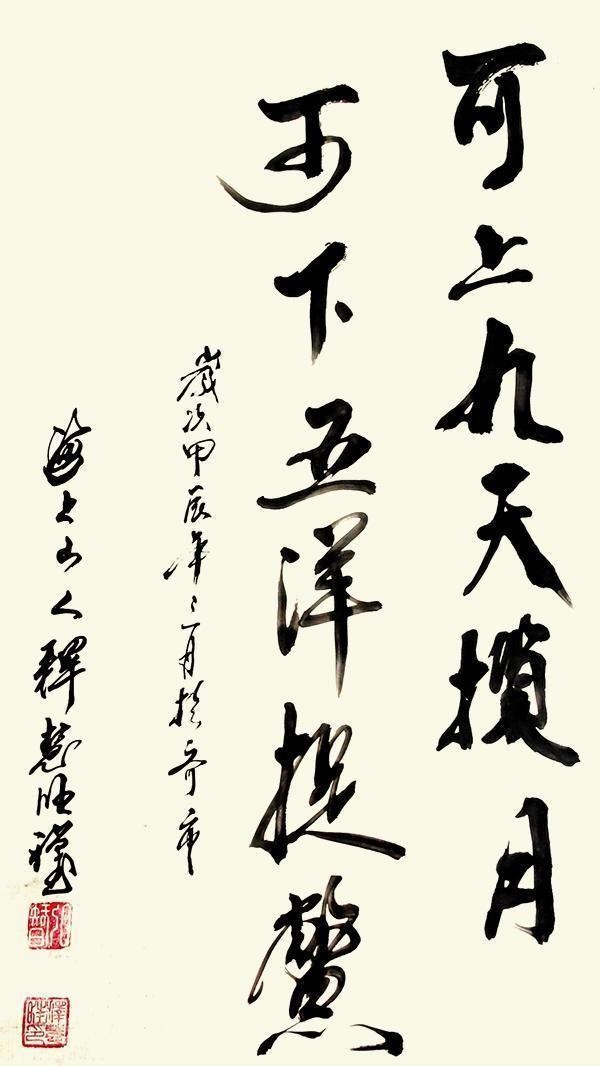 可上九天揽月
可下五洋捉鳖
岁次甲辰年二月于齐市
海上山人释慧旺